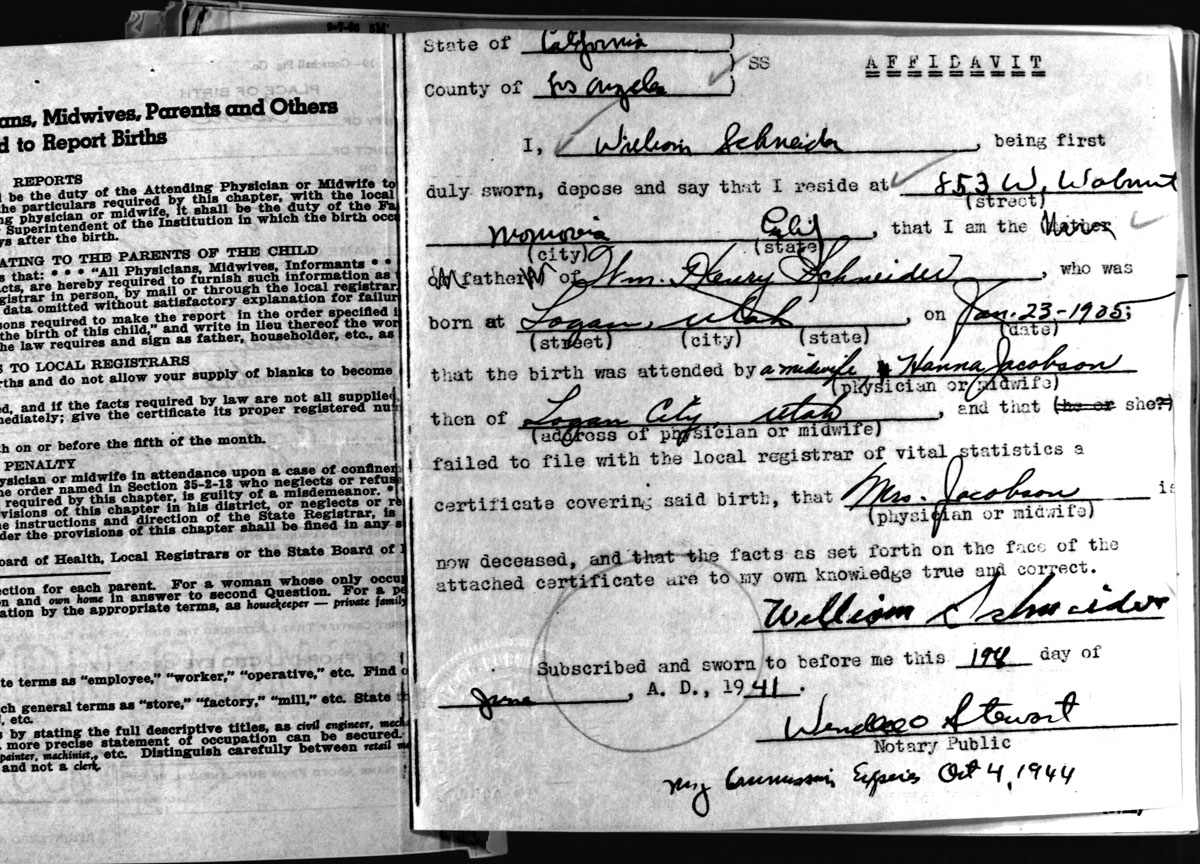 ans, Midwives, Parents and Others
d to Report Births
REPORTS
l be the duty of the Attending Physician or Midwife to
the particulars required by this chapter, with the local
ng physician or midwife, it shall be the duty of the Fa
Superintendent of the Institution in which the birth occu
ys after the birth.
ATING TO THE PARENTS OF THE CHILD
s that: * * * "All Physicians, Midwives, Informants * *
cts, are hereby required to furnish such information as
gistrar in person, by mail or through the local registrar.
data omitted without satisfactory explanation for failur
sons required to make the report in the order specified i
the birth of this child," and write in lieu thereof the wor
he law requires and sign as father, householder, etc., as
S TO LOCAL REGISTRARS
rths and do not allow your supply of blanks to become
ed, and if the facts required by law are not all supplied,
mediately; give the certificate its proper registered nu
th on or before the fifth of the month.
PENALTY
ysician or midwife in attendance upon a case of confinem
he order named in Section 35-2-13 who neglects or refuse
required by this chapter, is guilty of a misdemeanor. *
visions of this chapter in his district, or neglects or re
e instructions and direction of the State Registrar, is
der the provisions of this chapter shall be fined in any s
oard of Health, Local Registrars or the State Board of
ction for each parent. For a woman whose only occu
on and own home in answer to second Question. For a pe
ation by the appropriate terms, as housekeeper — private family
te terms as "employee," "worker," "operative," etc. Find o
ch general terms as "store," "factory," "mill," etc. State
, etc.
s by stating the full descriptive titles, as civil engineer, mech
more precise statement of occupation can be secured.
painter, machinist, etc. Distinguish carefully between retail me
and not a clerk.
State of California ) SS AFFIDAVIT
County of Los Angeles )
I, William Schneider, being first
duly sworn, depose and say that I reside at 853 W. Walnut
(street)
Monrovia Calif, that I am the Mother
(city) (state)
or father of Wm. Henry Schneider, who was
born at Logan, Utah, on Jan. 23-1905;
(street) (city) (state) (date)
that the birth was attended by a midwife Hanna Jacobson
(physician or midwife)
then of Logan City, Utah, and that (he or she?)
(address of physician or midwife)
failed to file with the local registrar of vital statistics a
certificate covering said birth, that Mrs. Jacobson is
(physician or midwife)
now deceased, and that the facts as set forth on the face of the
attached certificate are to my own knowledge true and correct.
William Schneider
Subscribed and sworn to before me this day of
June, A. D., 1941.
Wendell Stewart
Notary Public
My Commission Expires Oct 4, 1944